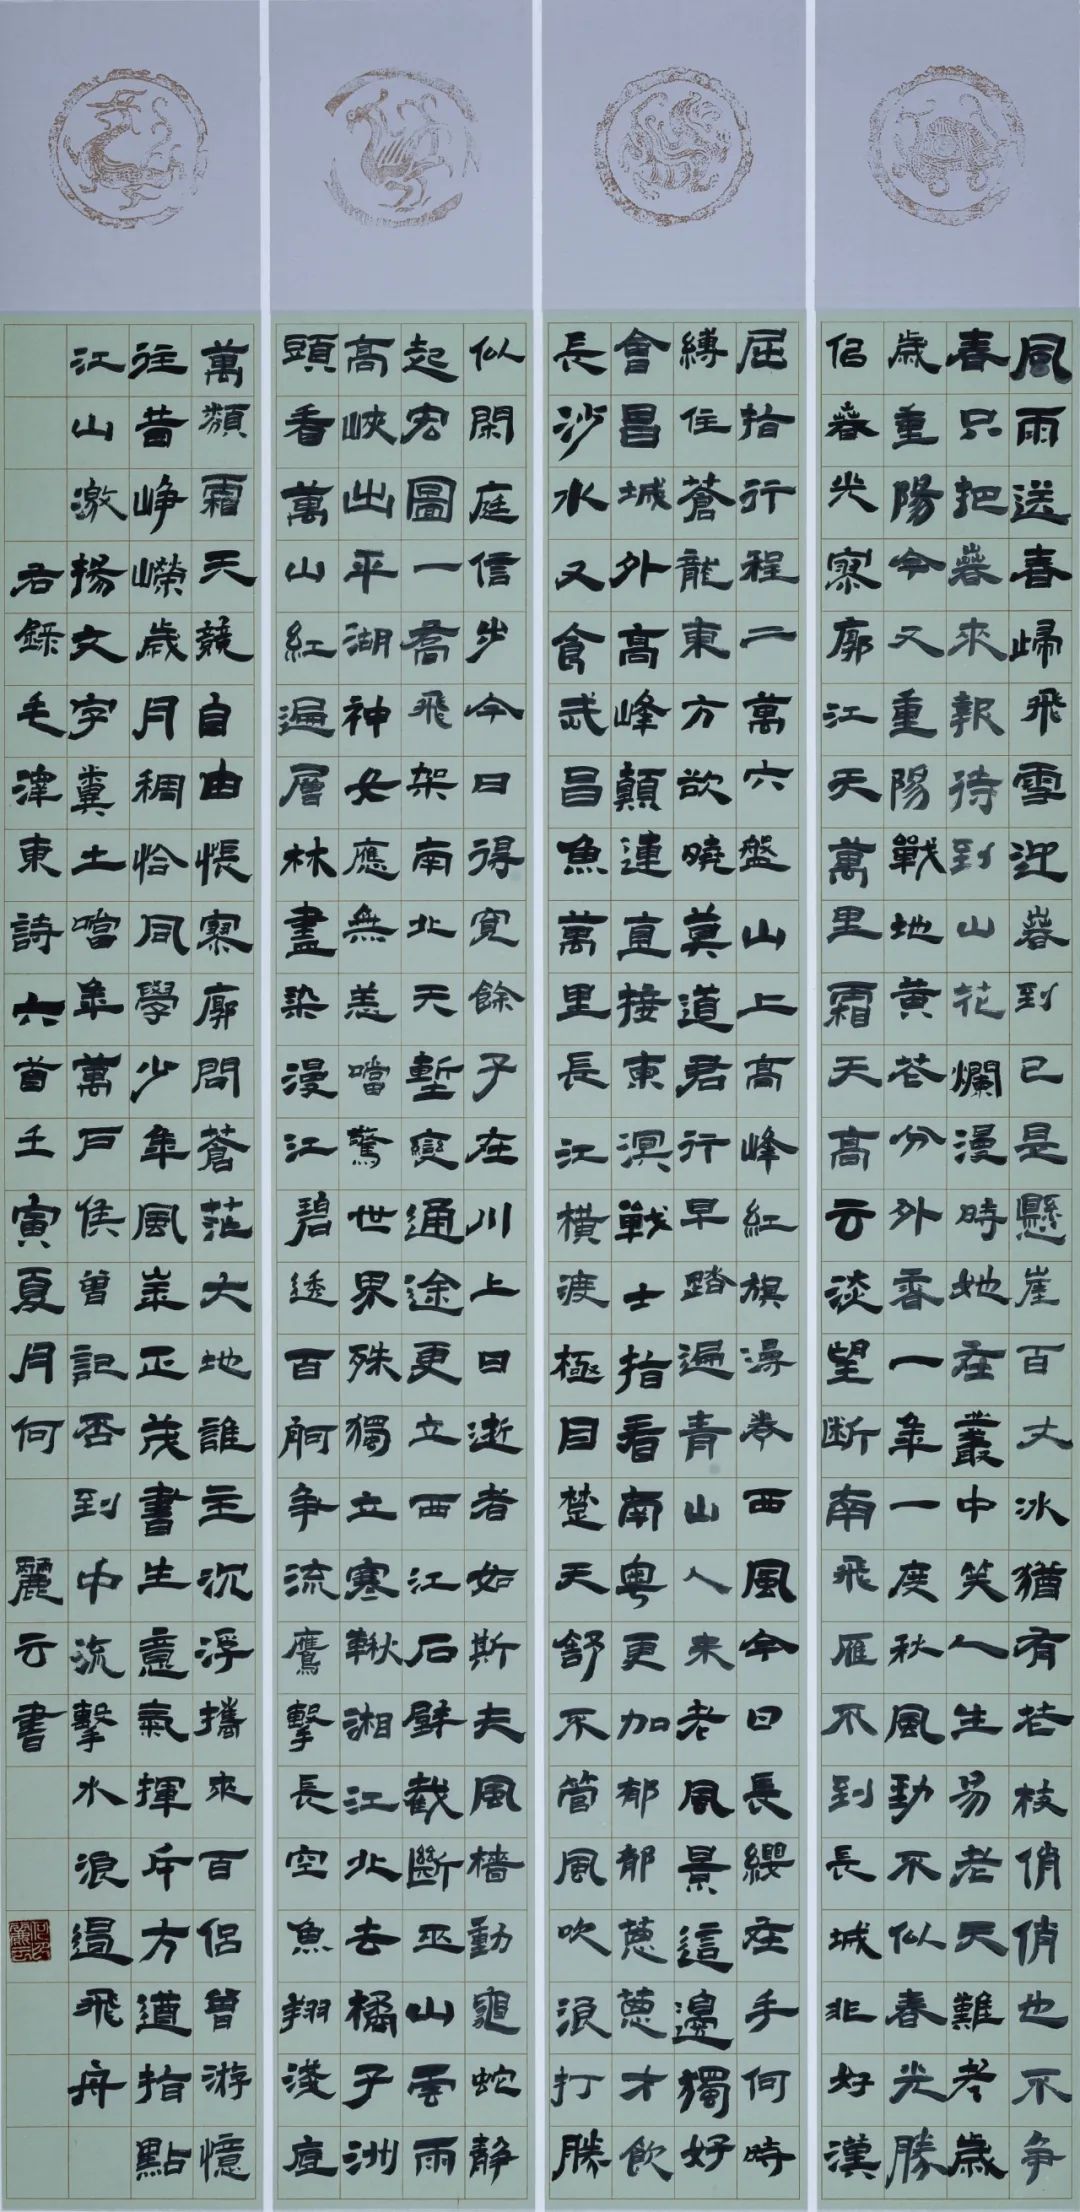 風雨送春歸飛雪迎春到已是懸崖百丈冰猶有花枝俏俏也不爭
春只把春來報待到山花爛漫時她在叢中笑人生易老天難老歲
歲重陽今又重陽戰地黃花分外香一年一度秋風勁不似春光勝
似春光寥廓江天萬里霜天高云淡望斷南飛雁不到長城非好漢
屈指行程二萬六盤山上高峰紅旗漫卷西風今日長纓在手何時
縛住蒼龍東方欲曉莫道君行早踏遍青山人未老風景這邊獨好
會昌城外高峰顛連直接東溟戰士指看南粵更加郁郁蔥蔥才飲
長沙水又食武昌魚萬里長江橫渡極目楚天舒不管風吹浪打勝
似閑庭信步今日得寬餘子在川上曰逝者如斯夫風檣動龜蛇靜
起宏圖一喬飛架南北天塹變通途更立西江石壁截斷巫山雲雨
高峽出平湖神女應無恙噹驚世界殊獨立寒鞦湘江北去橘子洲
頭看萬山紅遍層林盡染漫江碧透百舸爭流鷹擊長空魚翔淺底
萬類霜天競自由悵寥廓問蒼茫大地誰主沉浮攜來百侶曾游憶
往昔崢嶸歲月稠恰同學少年風華正茂書生意氣揮斥方遒指點
江山激揚文字糞土噹年萬戶侯曾記否到中流擊水浪遏飛舟
右錄毛澤東詩六首壬寅夏月何麗云書